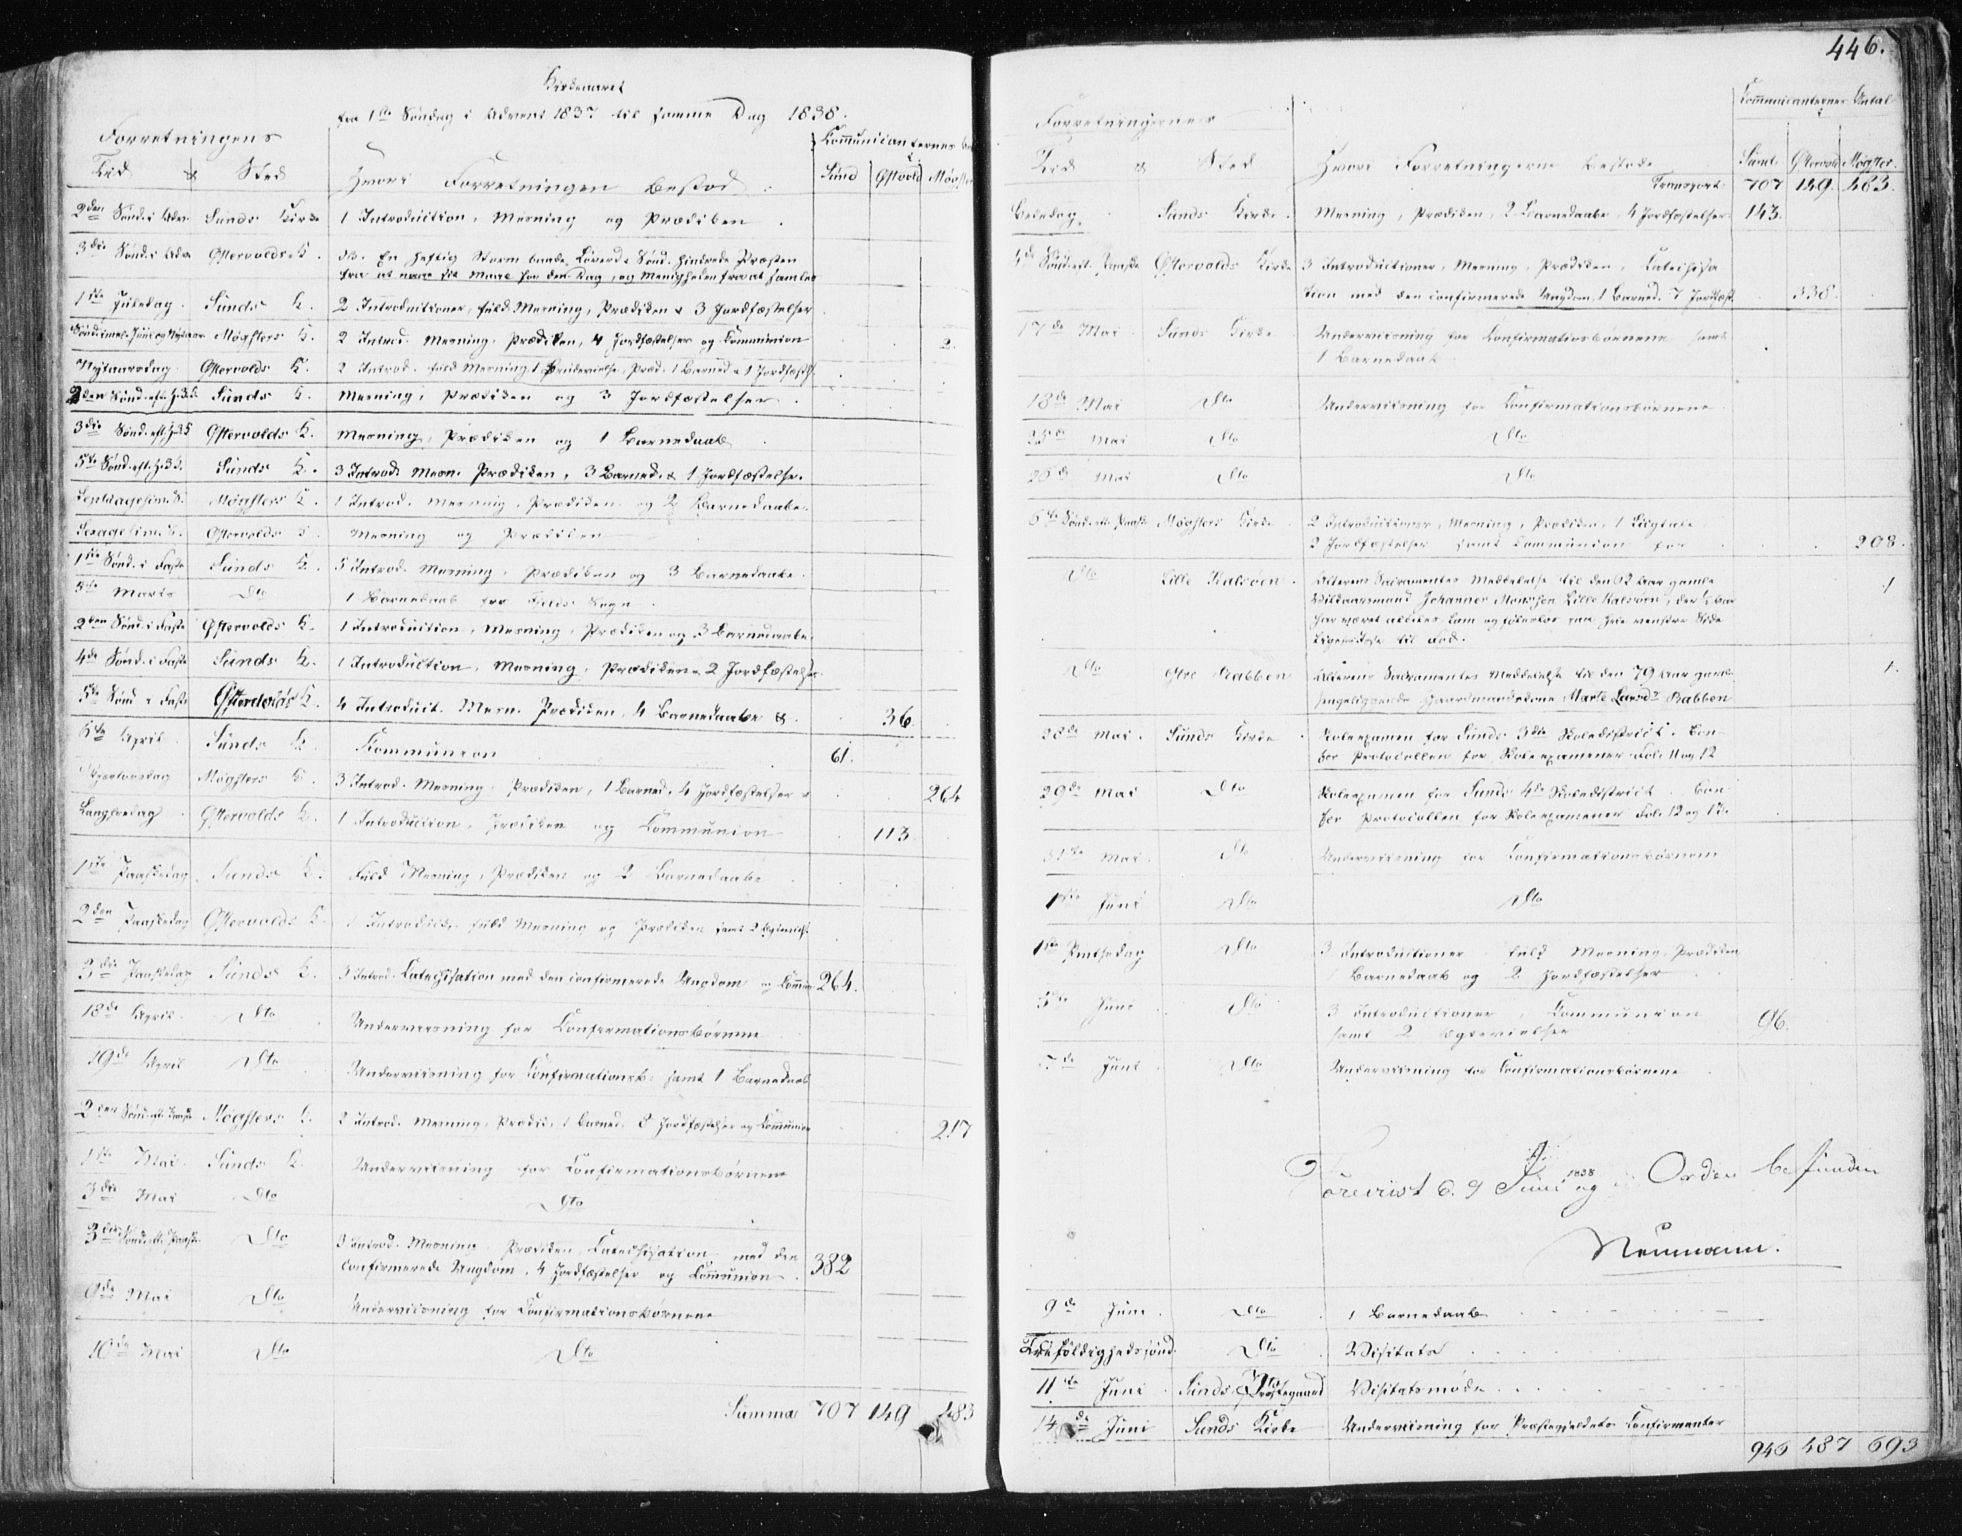 Kirkeaaret
fra 1ste Søndag i Advent 1837 til samme Dag 1838.
Forretningens
Communicanternes
Tid & Sted Hvori Forretningen bestod: Sund Østvold Møgster
2den Sønd. i Adv. Sunds Kirke 1 Introduction, Mesning og Prædiken
3die Sønd. i Adv. Østervolds K. NB. En heftig Storm baade Løverd. & Sønd. hindrede Præsten
fra at naae sit Maal for den Dag, og Menigheden fra at samles
1ste Juledag Sunds K. 2 Introductioner, fuld Mesning, Prædiken & 3 Jordfæstelser
Sønd. ml. Juul og Nytaar Møgsters K. 2 Introd. Mesning, Prædiken, 4 Jordfæstelser og Communion 2.
Nytaarsdag Østervolds K. 2 Introd. fuld Mesning, 1 Brudevielse, Præd. 1 Barned. & 1 Jordfæst.
2den Sønd. eft. H.3.K. Sunds K. Mesning, Prædiken og 3 Jordfæstelser
3die Sønd. eft. H.3.K. Østervolds K. Mesning, Prædiken og 1 Barnedaab
5te Sønd. eft. H.3.K. Sunds K. 3 Introd. Mesn. Prædiken, 3 Barned. & 1 Jordfæstelse.
Septuagesim. S. Møgsters K. 1 Introd. Mesning, Prædiken og 2 Barnedaabe.
Sexagesim. S. Østervolds K. Mesning og Prædiken
1ste Sønd. i Faste Sunds K. 5 Introd. Mesning, Prædiken og 3 Barnedaabe.
5te Marts Dto 1 Barnedaab fra Fjelds Sogn
2den Sønd. i Faste Østervolds K. 1 Introduction, Mesning, Prædiken og 3 Barnedaabe.
4de Sønd. i Faste Sunds K. 1 Introduction, Mesning, Prædiken & 2 Jordfæstelser
5te Sønd. i Faste Østervolds K. 4 Introduct. Mesn. Prædiken, 4 Barnedaabe & 36.
6te April Sunds K. Communion 61.
Skjertorsdag Møgsters K. 3 Introd. Mesning, Prædiken, 1 Barned. 4 Jordfæstelser & 264
Langfredag Østervolds K. 1 Introduction, Prædiken og Communion 113.
1ste Paaskedag Sunds K. Fuld Mesning, Prædiken og 2 Barnedaabe
2den Paaskedag Østervolds K. 1 Introduct. fuld Mesning og Prædiken samt 2
3die Paaskedag Sunds K. 3 Introd. Catechisation med den confirmerede Ungdom og Commun. 264.
18de April Dto Underviisning for Confirmationsbørnene
19de April Dto Underviisning for Confirmationsb. samt 1 Barnedaab
2den Sønd. eft. Paaske Møgsters K. 2 Introd. Mesning, Prædik. 1 Barned. 8 Jordfæstelser og Communion 217
1ste Mai. Sunds K. Underviisning for Confirmationsbørnene
3die Mai Dto Dto
3die Sønd. eft. Paaske Dto 3 Introd. Mesning, Prædiken, Catechisation med den
confirmerede Ungdom, 4 Jordfæstelser og Communion 382
9de Mai Dto Underviisning for Confirmationsbørnene
10de Mai Dto Dto
Summa 707 149 483
446.
Forretningernes
Communicanternes Antal
Tid & Sted Hvori Forretningerne bestode Sund Østervold Møgster.
Transport: 707 149. 483.
Bededag. Sunds Kirke Mesning, Prædiken, 2 Barnedaabe, 4 Jordfæstelser 143.
4de Sønd. eft. Paaske Østervolds Kirke 3 Introductioner, Mesning, Prædiken, Catechisa
tion med den confirmerede Ungdom, 1 Barned. 7 Jordfæst. 338.
17de Mai Sunds Kirke Underviisning for Confirmationsbørnene samt
1 Barnedaab
18de Mai Dto Underviisning for Confirmationsbørnene
25de Mai Dto Dto
26de Mai Dto Dto
6te Sønd. eft. Paaske Møgsters Kirke 2 Introductioner, Mesning, Prædiken, 1
2 Jordfæstelser samt Communion for 208.
Dto Lille Kalsøen. Alterens Sacramentes Meddelelse til den 62 Aar gamle
Johannes Monssen Lille Kalsøen, der
har været aldeles lam og følesløs paa høire venstre Side
til Død. 1
Dto Østre Rabben Alterens Sacramentes Meddelelse til den 79 Aar gamle
sengeliggende Gaardmandskone Marte Larsdr Rabben 1.
28de Mai. Sunds Kirke Skoleexamen for Sunds 3die Skoledistrict. Con-
fer Protocollen for Skoleexamener Fol. 11 og 12
29de Mai Dto Skoleexamen for Sunds 4de Skoledistrict. Con-
fer Protocollen for Skoleexamener Fol. 12 og 13.
31te Mai. Dto Underviisning for Confirmationsbørnene
1ste Juni Dto Dto
1ste Pintsedag Dto 3 Introductioner, fuld Mesning, Prædiken
1 Barnedaab og 2 Jordfæstelser
5te Juni Dto 3 Introductioner, Communion
samt 2 Ægtevielser 96.
7de Juni Dto Underviisning for Confirmationsbørnene
Foreviist d. 9 Juni 1838 og i Orden befunden
Neumann.
9de Juni Dto 1 Barnedaab
Trefoldighedssønd. Dto Visitats
11te Juni Sunds Præstegaard Visitatsmøde
14de Juni Sunds Kirke Underviisning for Præstegjeldets Confirmanter
946 487 693